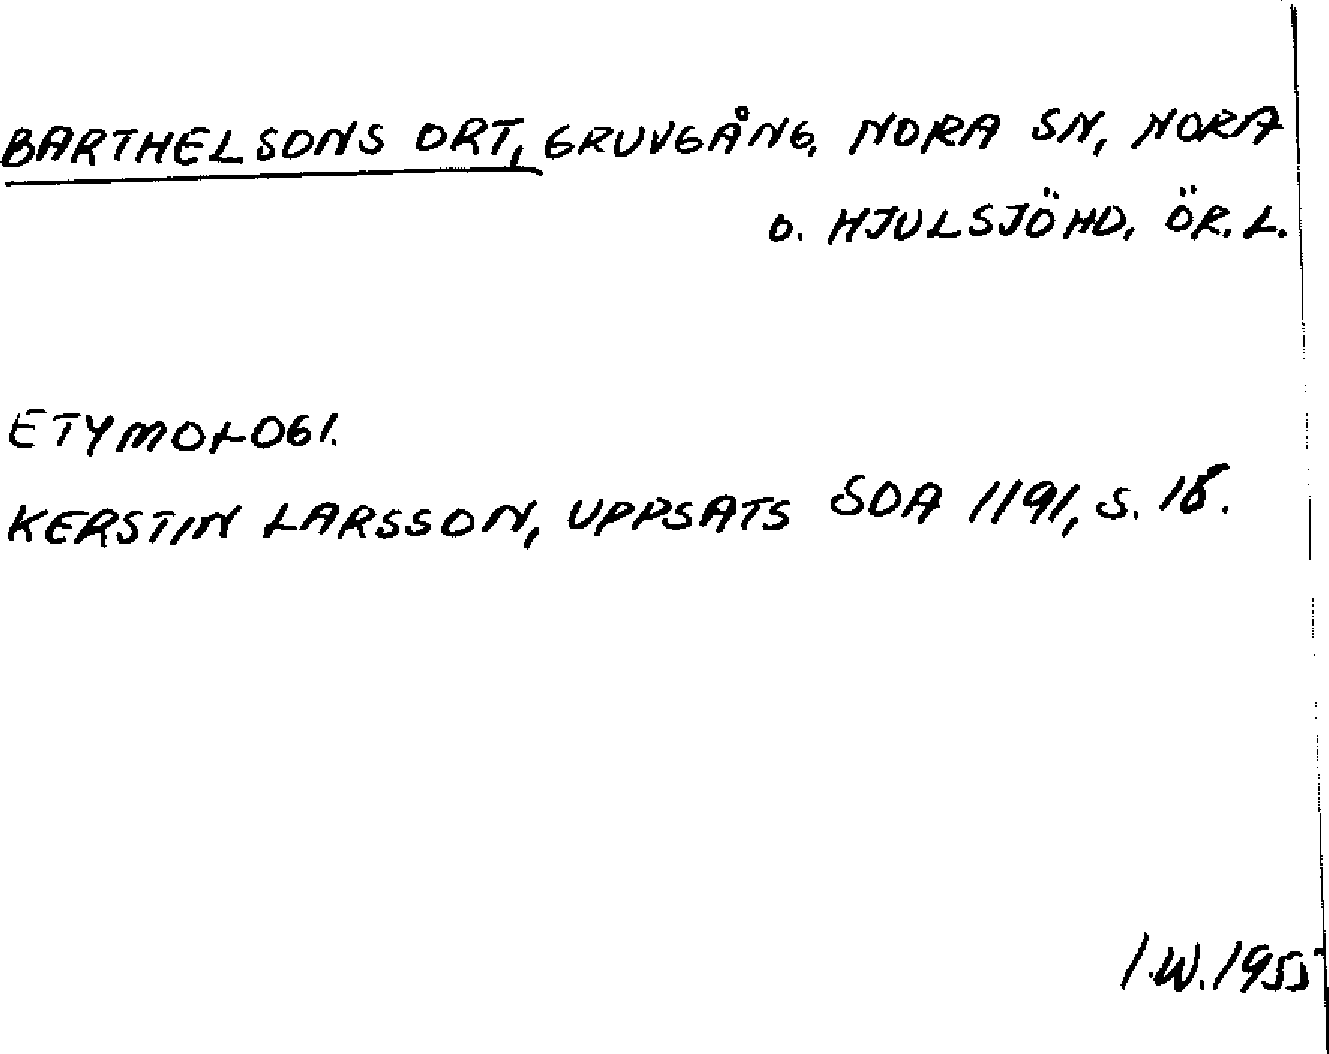 BARTHELSONS ORT, GRUVGÅNG, NORA SN, NORA
O. HJULSJÖ HD, ÖR. L.
ETYMOLOGI.
KERSTIN LARSSON, UPPSATS SOA 1191, S. 18.
I.W. 1955